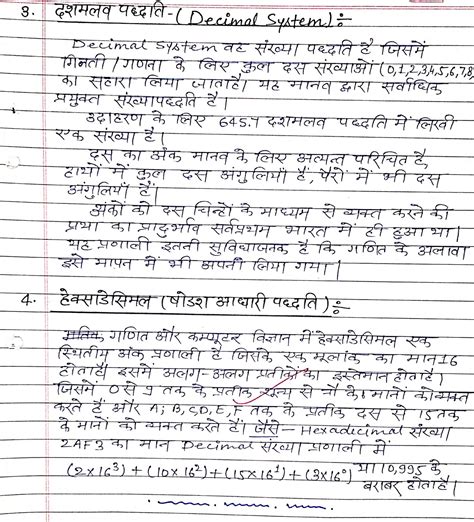 3. दशमलव पद्धति - (Decimal System) ÷
Decimal System वह संख्या पद्धति है जिसमें
गिनती / गणना के लिए कुल दस संख्याओं (0,1,2,3,4,5,6,7,8
का सहारा लिया जाता है। यह मानव द्वारा सर्वाधिक
प्रयुक्त संख्यापद्धति है।
उदाहरण के लिए 645.7 दशमलव पद्धति में लिखी
एक संख्या है।
दस का अंक मानव के लिए अत्यन्त परिचित है,
हाथों में कुल दस अंगुलियाँ हैं, पैरों में भी दस
अंगुलियाँ हैं।
अंकों को दस चिन्हों के माध्यम से व्यक्त करने की
प्रथा का प्रादुर्भाव सर्वप्रथम भारत में ही हुआ था।
यह प्रणाली इतनी सुविधाजनक है कि गणित के अलावा
इसे मापन में भी अपनी लिया गया।
4. हेक्साडेसिमल (षोडश आधारी पद्धति) ÷
गणित और कम्प्यूटर विज्ञान में हेक्साडेसिमल एक
स्थितीय अंक प्रणाली है जिसके एक मूलांक का मान 16
होता है। इसमें अलग-अलग प्रतीकों का इस्तेमाल होता है।
जिसमें 0 से 9 तक के प्रतीक शून्य से नौ के मानों को व्यक्त
करते हैं और A, B, C, D, E, F तक के प्रतीक दस से 15 तक
के मानों को व्यक्त करते हैं। जैसे - Hexadicimal संख्या
2AF3 का मान Decimal संख्या प्रणाली में
(2×16³) + (10×16²) + (15×16¹) + (3×16⁰) या 10,995 के
बराबर होता है।